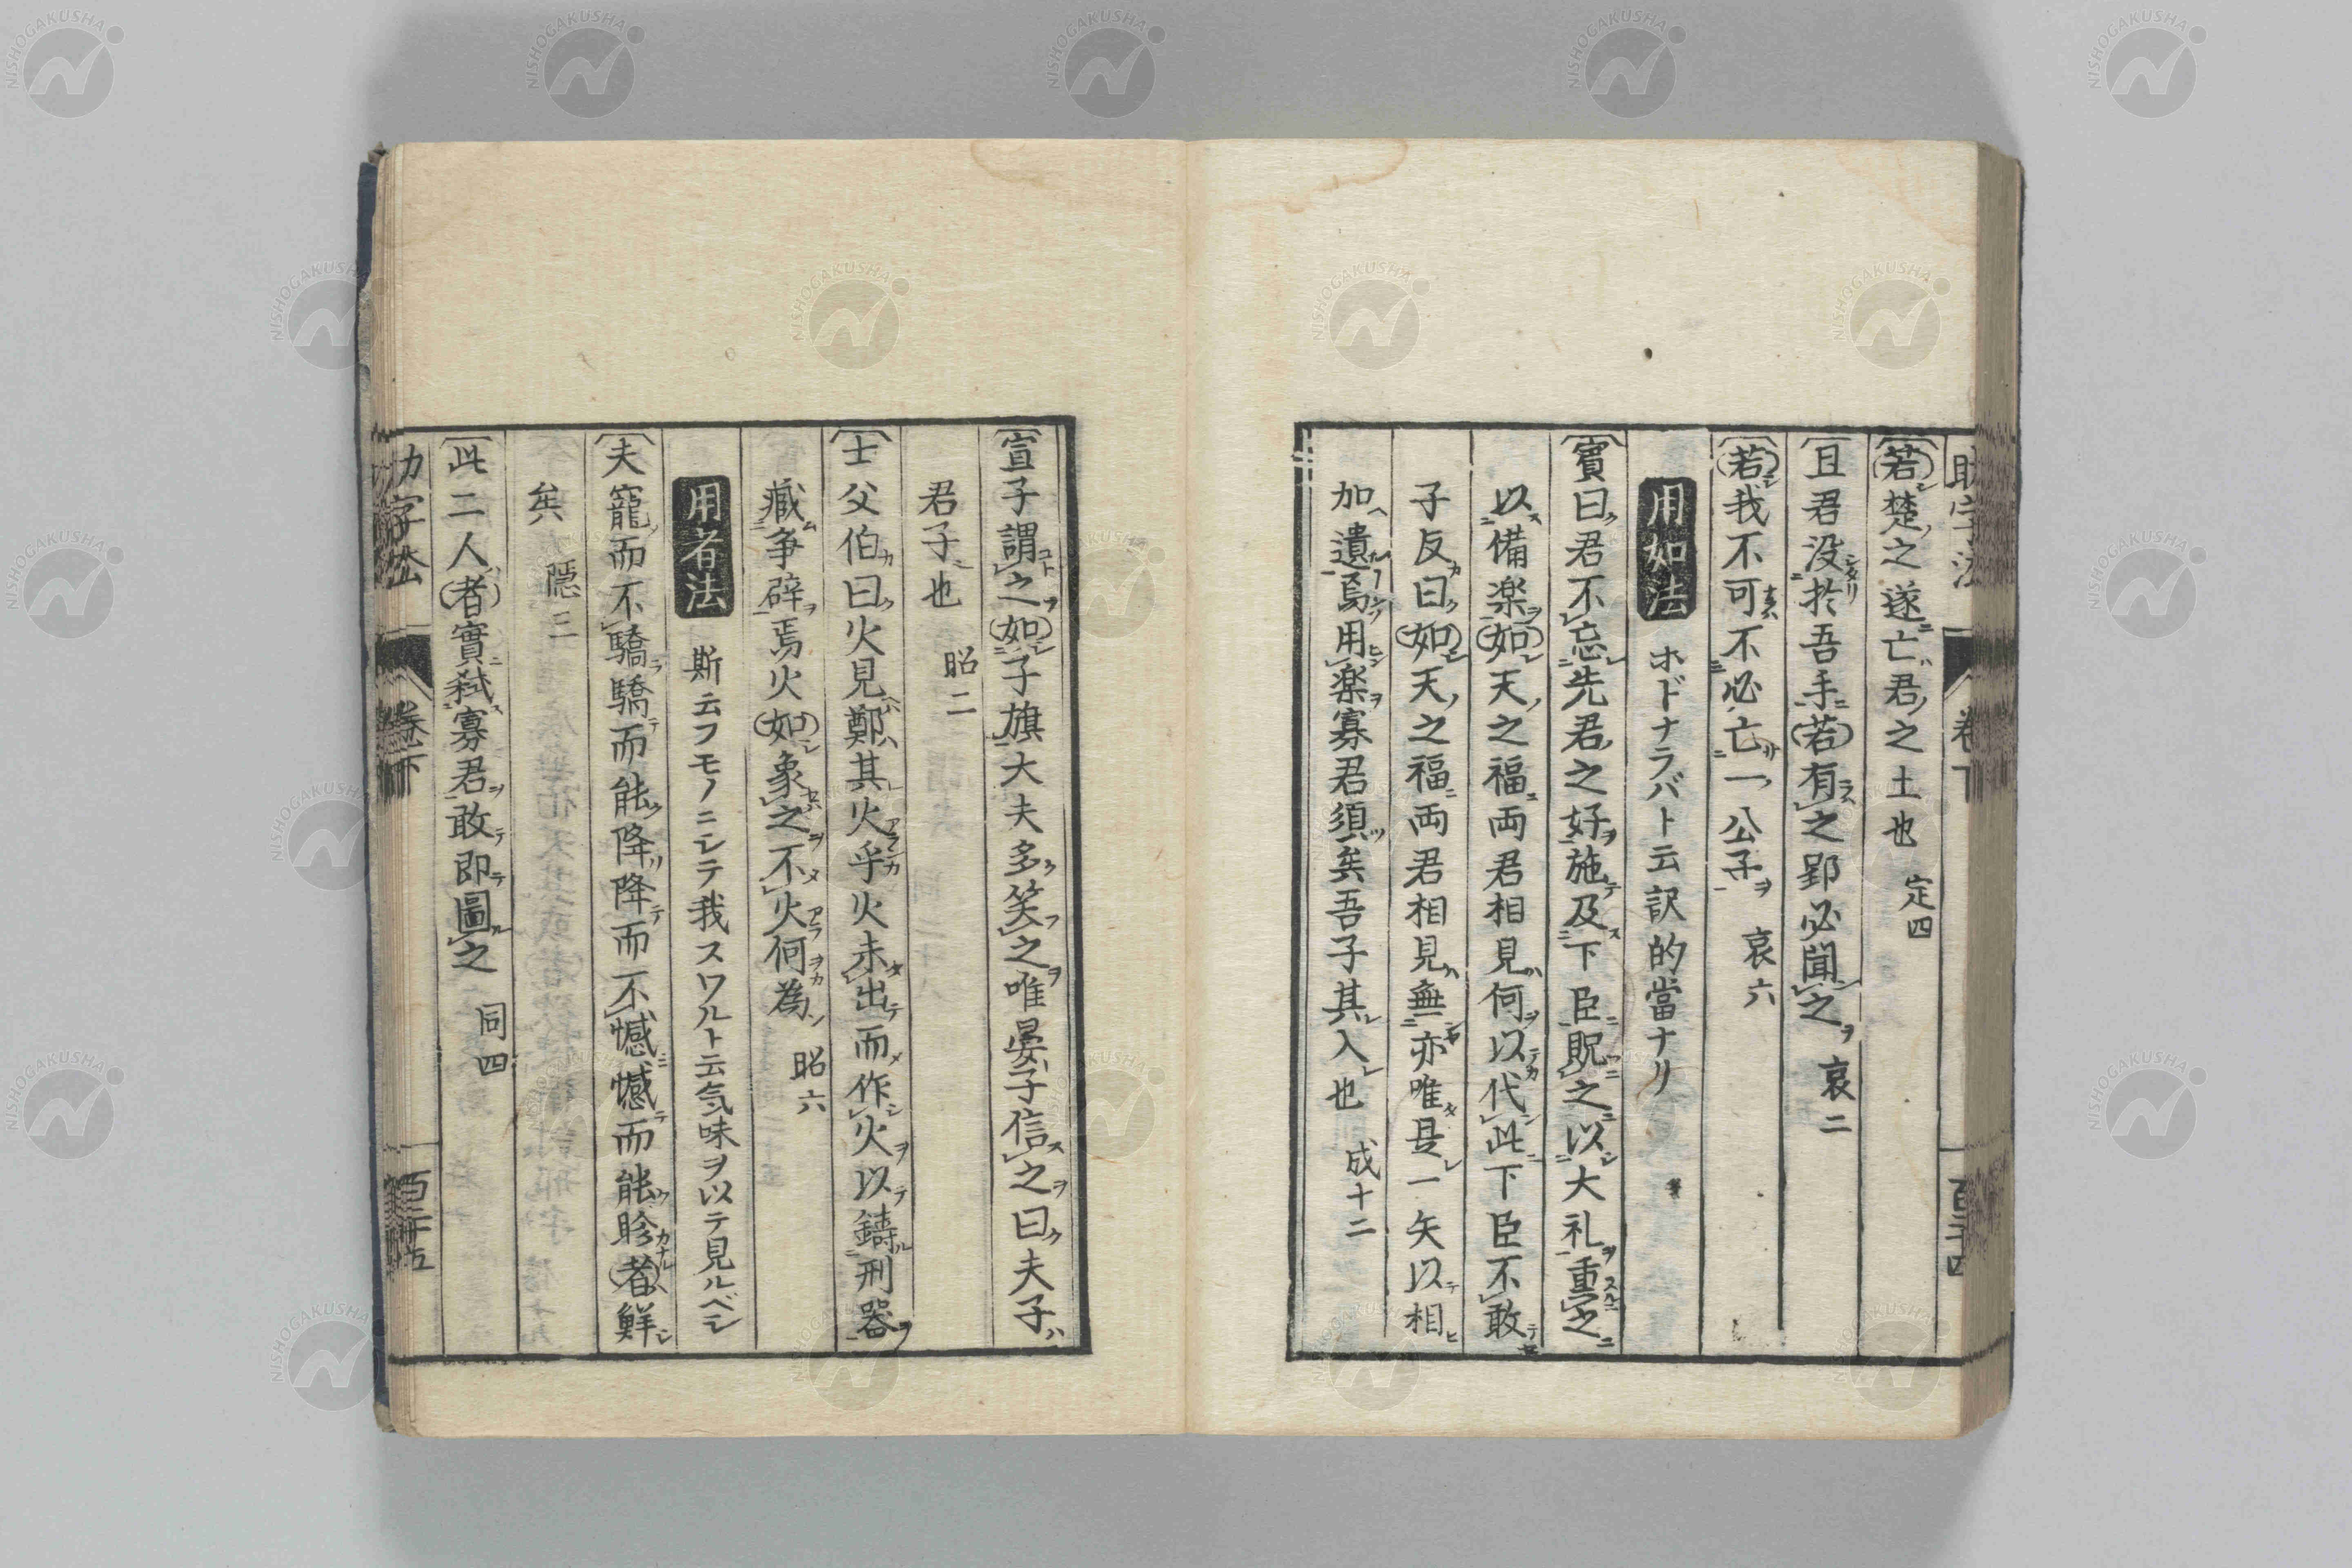 若楚之遂亡君之土也 定四
且君没於吾手若有之郢必聞之 哀二
若我不可不必亡一公子 哀六
用如法 ホドナラバト云訳的當ナリ
賓曰君不忘先君之好施及下臣貺之以大礼重之
以備楽如天之福両君相見何以代此下臣不敢
子反曰如天之福両君相見無亦唯是一矢以相
加遺焉用楽寡君須矣吾子其入也 成十二
卷下
宣子謂之如子旗大夫多笑之唯晏子信之曰夫子
君子也 昭二
士父伯曰火見鄭其火乎火未出而作火以鋳刑器
蔵争辟焉火如象之不火何為 昭六
用者法 斯云フモノニシテ我スワルト云気味ヲ以テ見ルベシ
夫寵而不驕驕而能降降而不憾憾而能眕者鮮
矣 隠三
此二人者實弒寡君敢即圖之 同四
字法 卷下
NISHOGAKUSHA